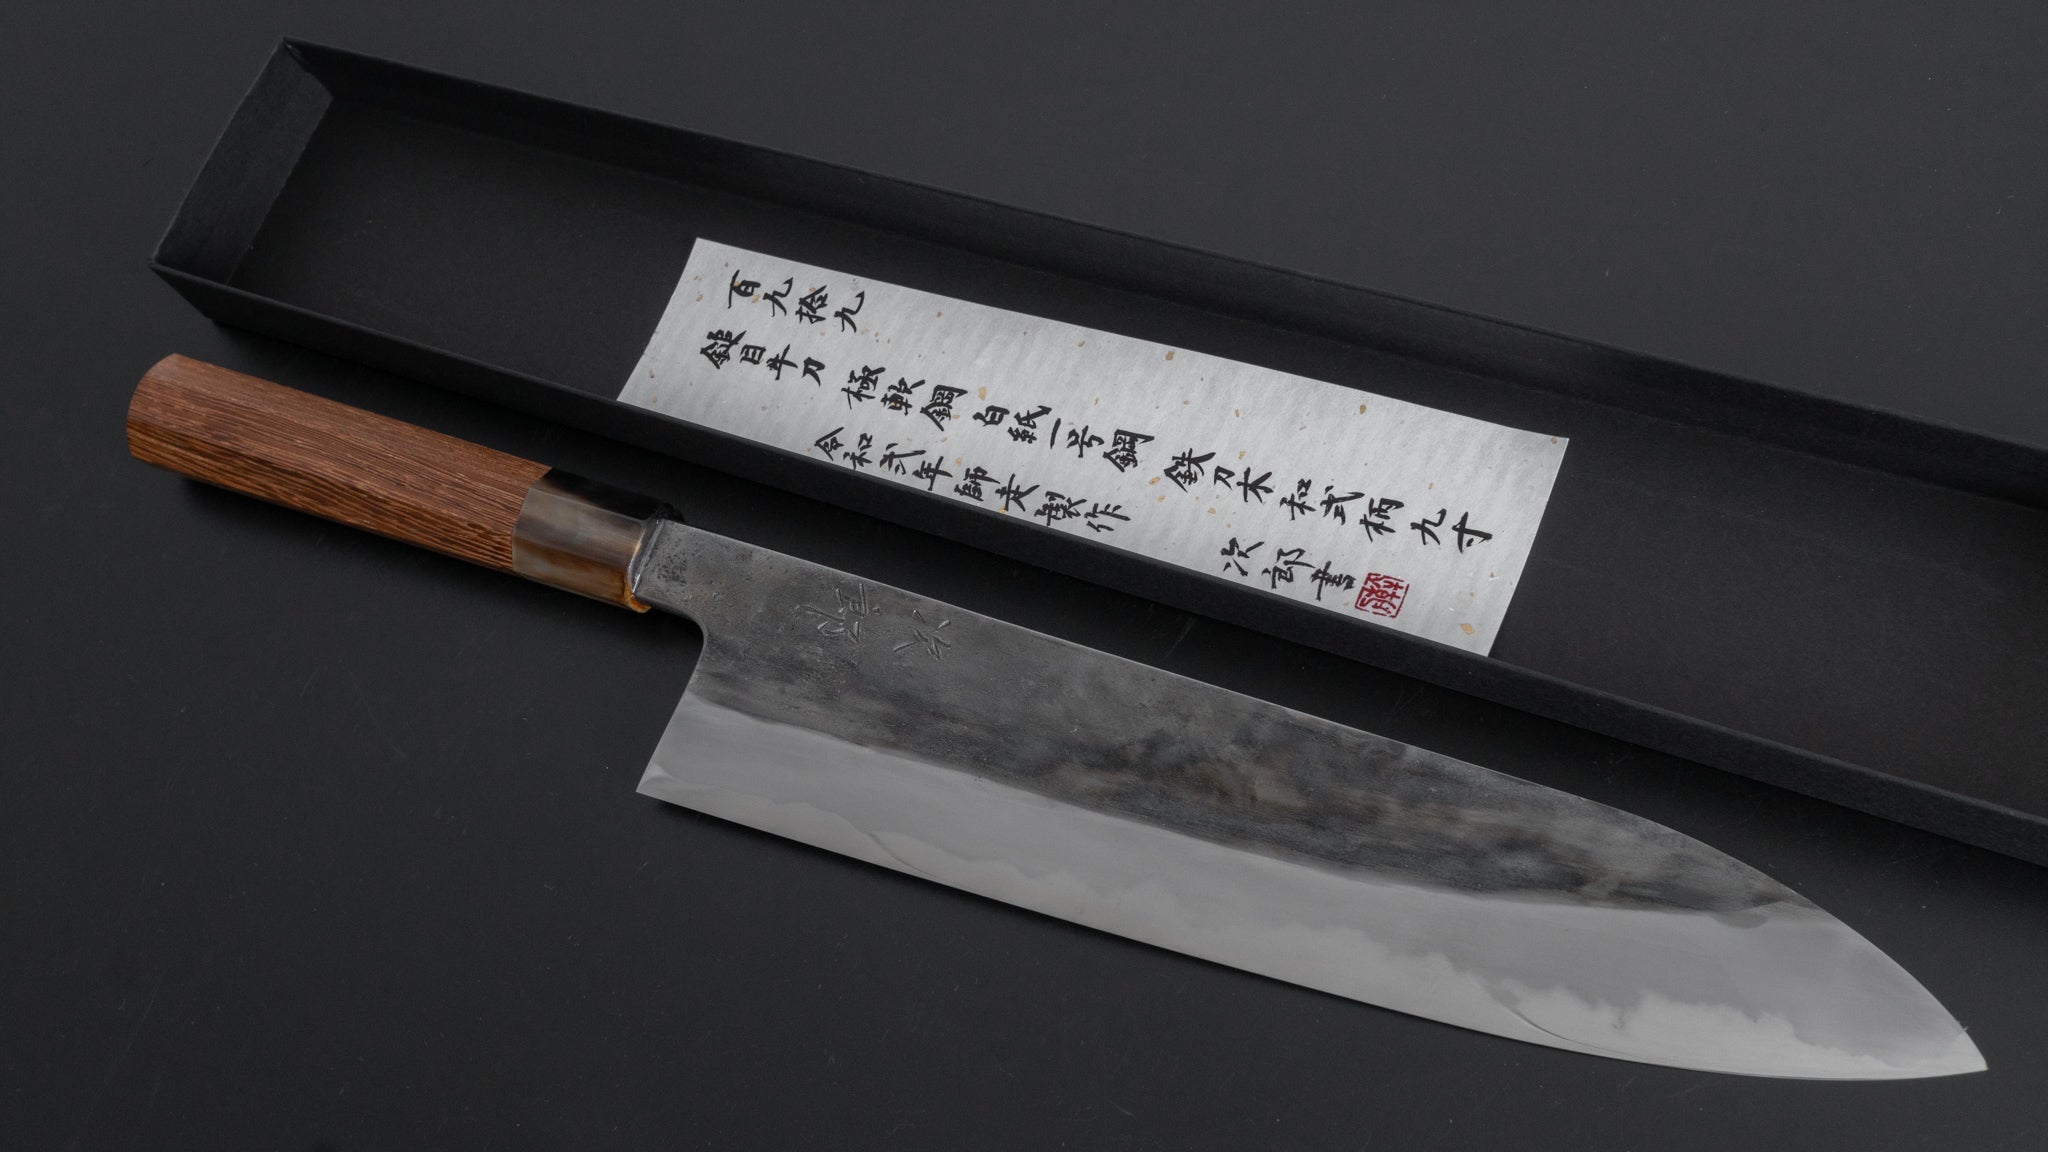 百九拾九
鎚目牛刀 極軟鋼 白紙一号鋼 鉄刀木 和式柄 九寸
令和弐年師走製作
次郎書